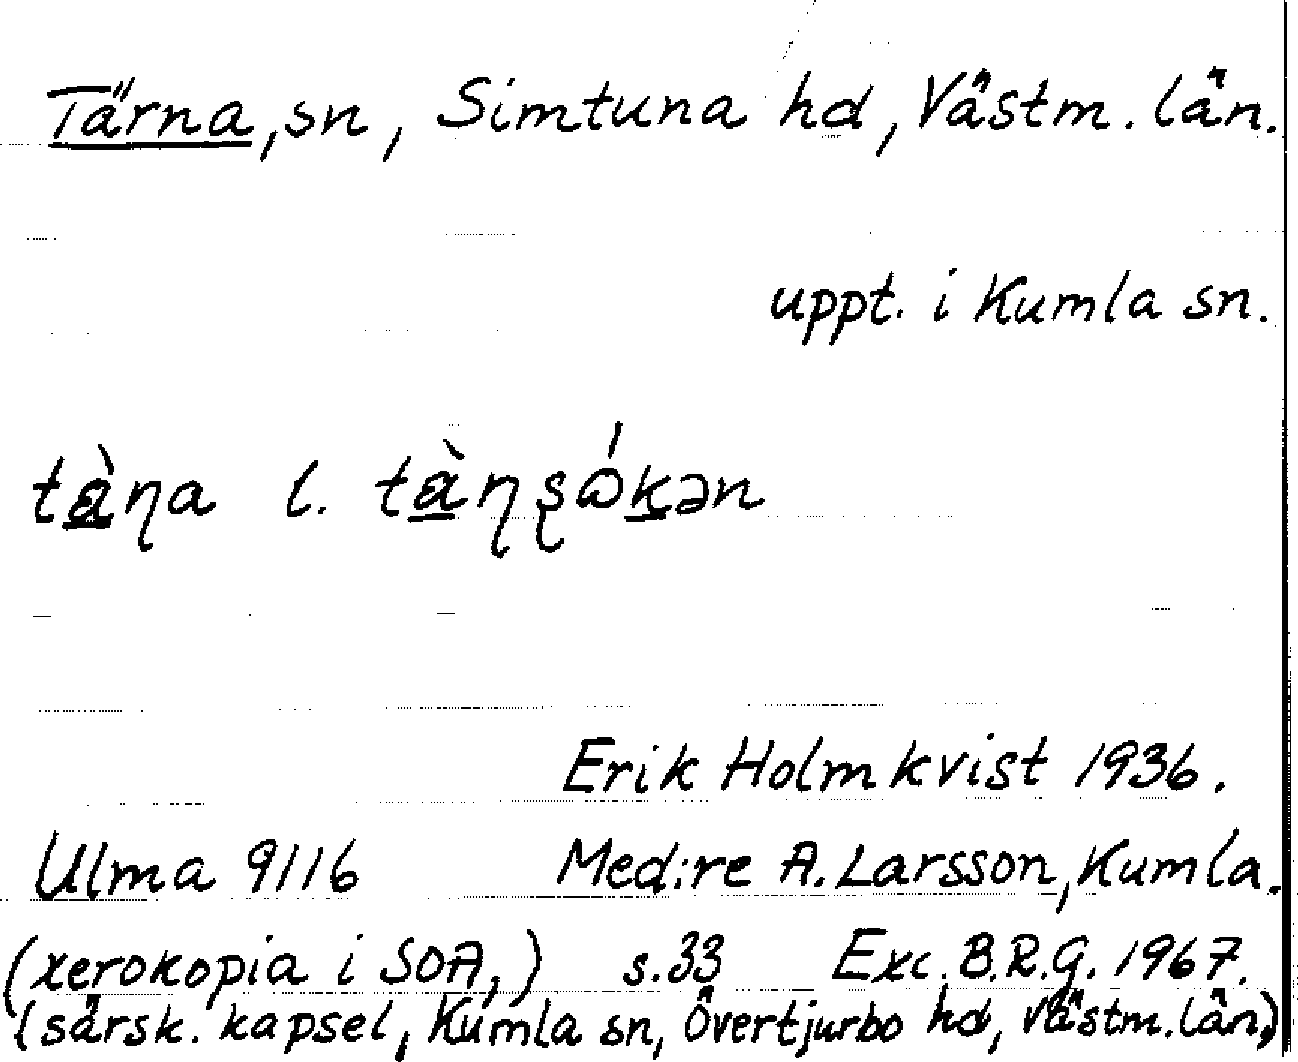 Tärna, sn, Simtuna hd, Västm. län.
uppt. i Kumla sn.
tà̲ɳa l. tà̲ɳʂɷ́k̲ən
Erik Holmkvist 1936.
Ulma 9116 Med:re A. Larsson, Kumla.
(xerokopia i SOA,) s.33 Exc. B.R.G. 1967.
(särsk. kapsel, Kumla sn, Övertjurbo hd, Västm. län.)